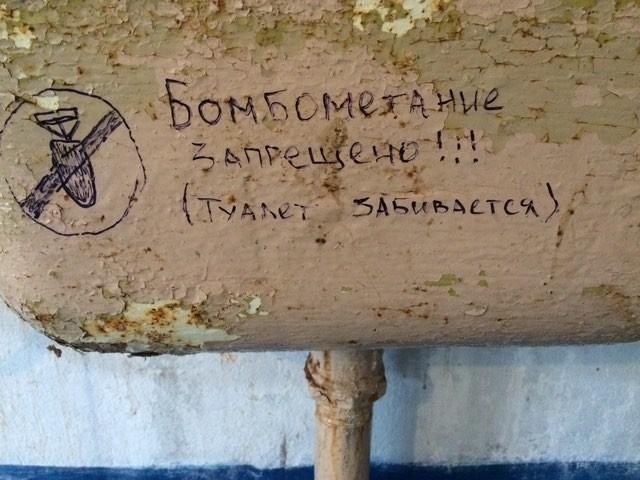 Бомбометание
запрещено!!!
(туалет забивается)